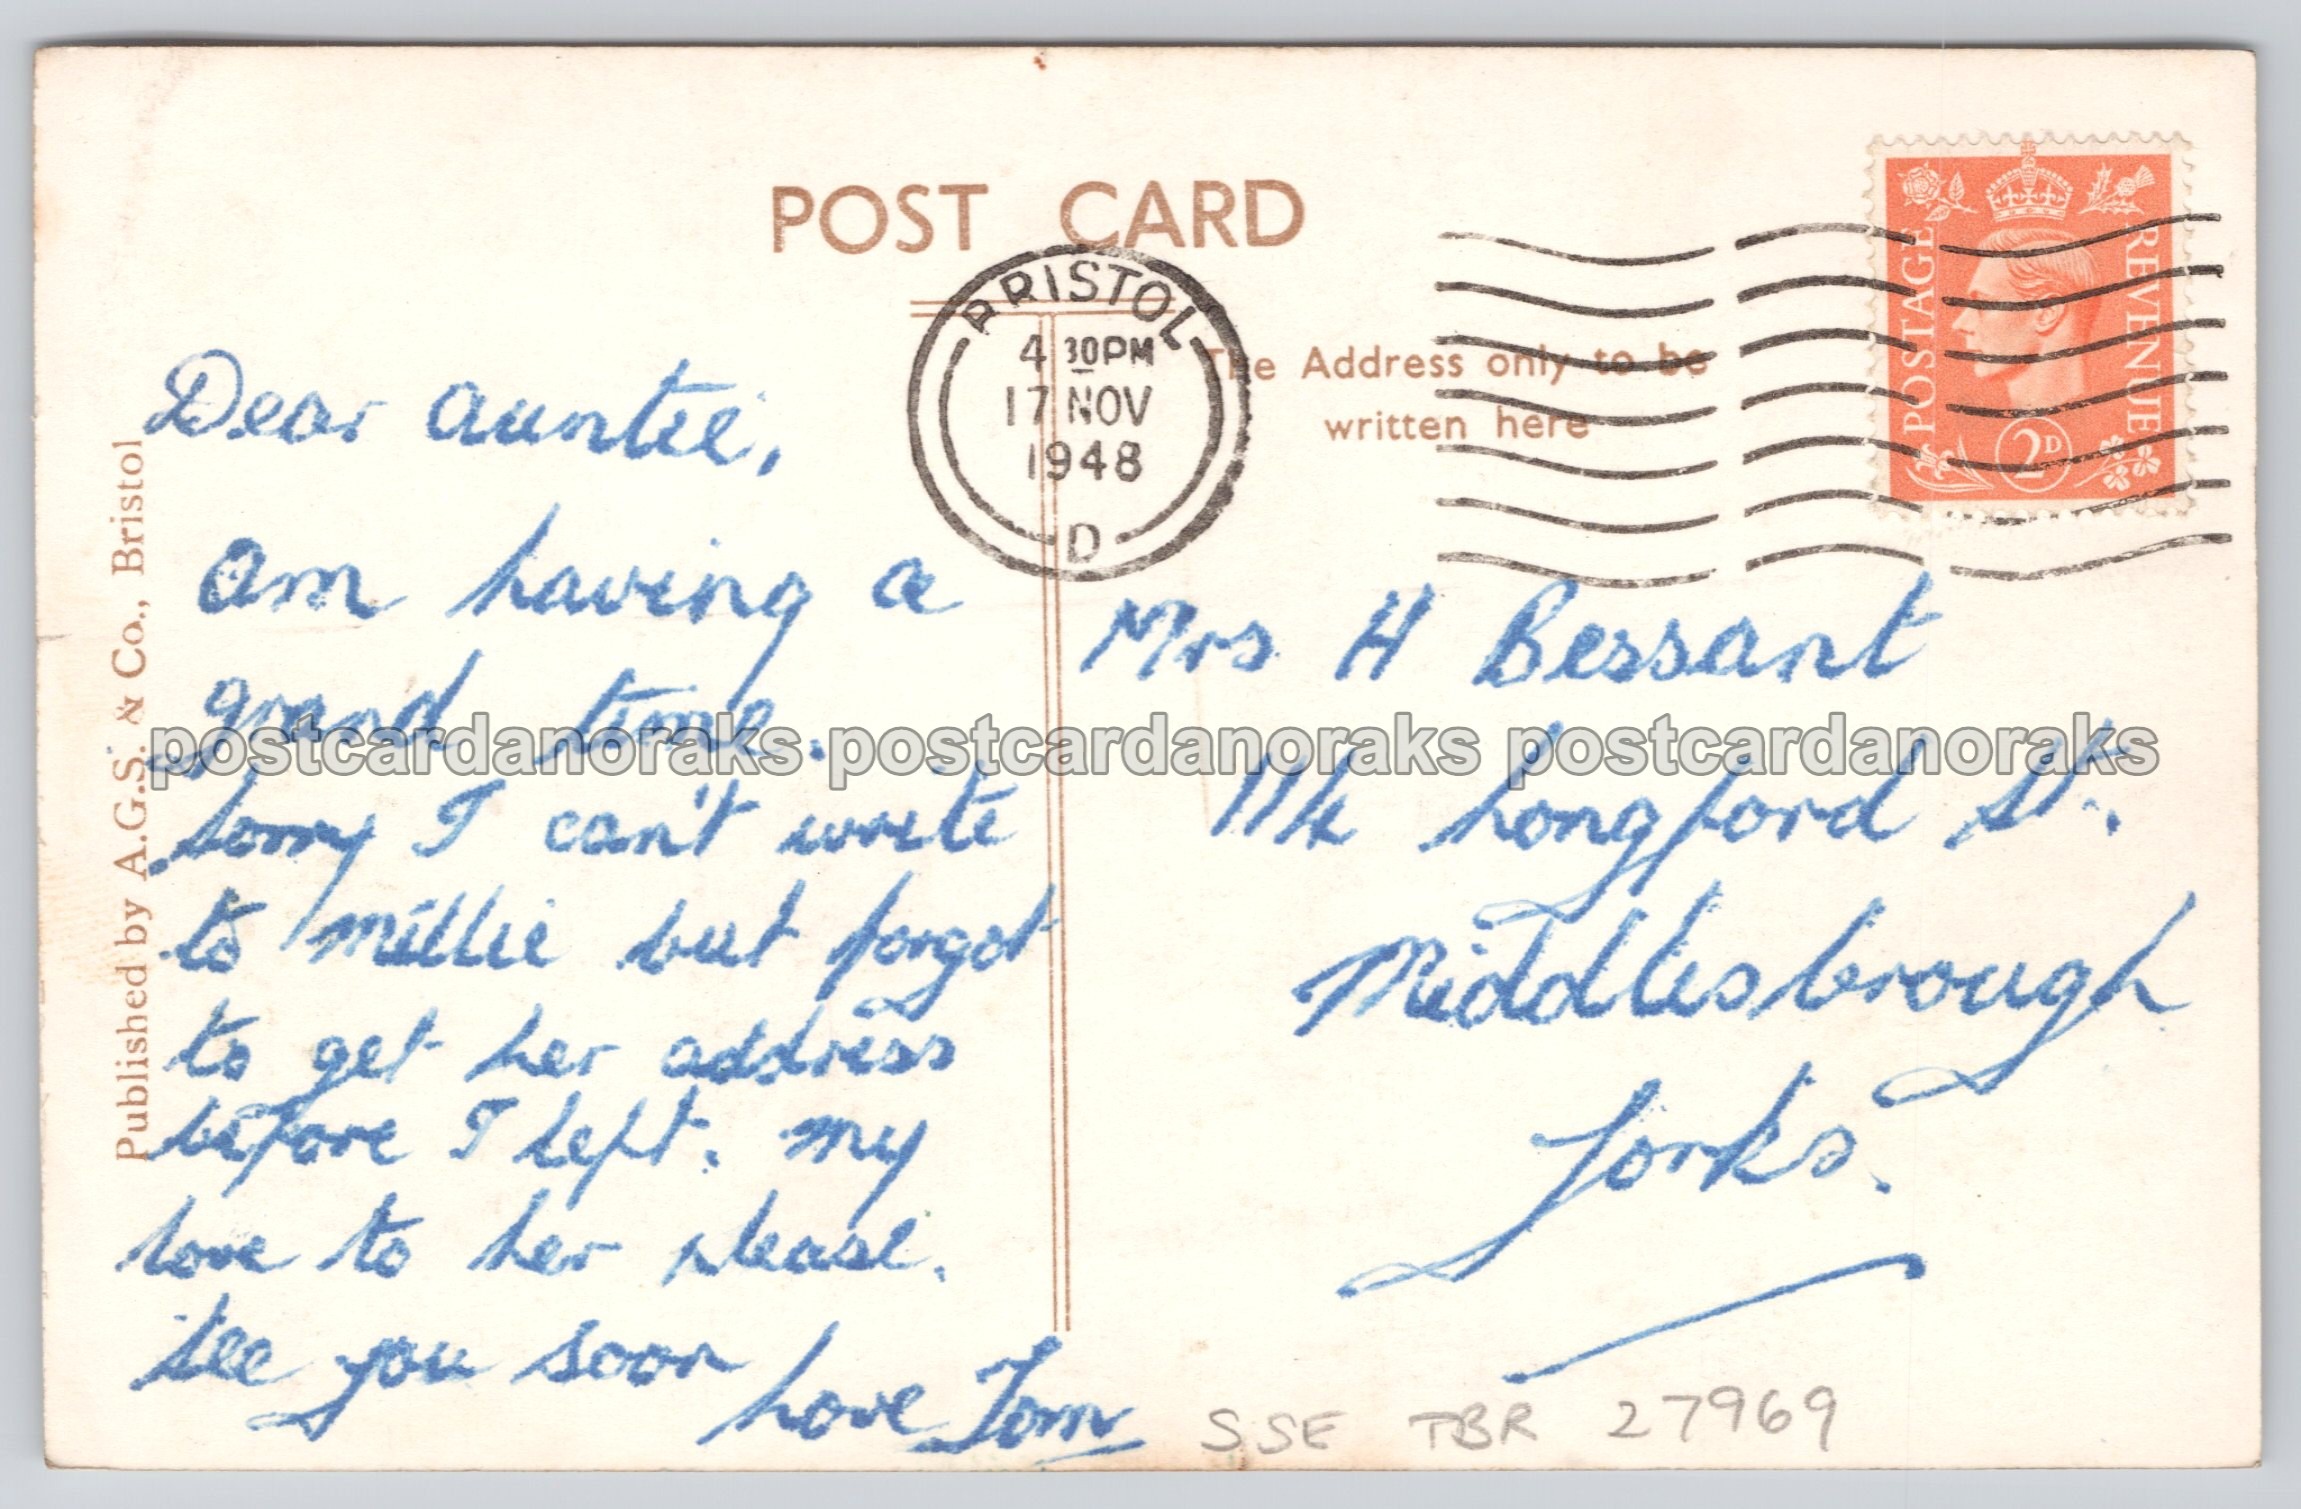 POST CARD
BRISTOL
4 30PM
17 NOV
1948
D
The Address only to be
written here
POSTAGE
REVENUE
2D
Published by A.G.S. & Co., Bristol
Dear Auntie,
Am having a
grand time.
Sorry I can't write
to Millie but forgot
to get her address
before I left. My
love to her please.
See you soon
Love Tom
Mrs H Bessant
114 Longford St.
Middlesbrough
Yorks.
SSE TBR 27969
postcardanoraks postcardanoraks postcardanoraks